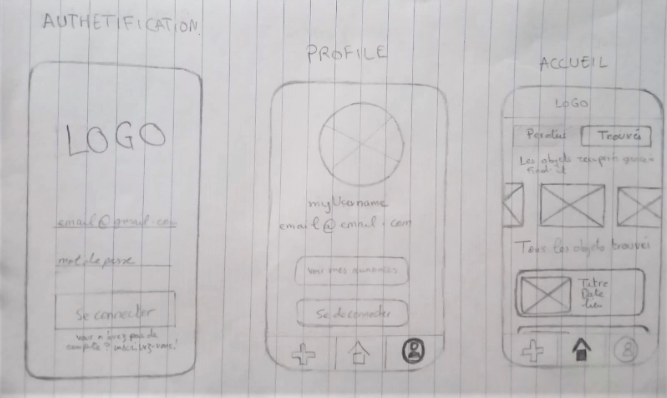 AUTHETIFICATION.
LOGO
email@gmail.com
mot de passe
Se connecter
vous n'avez pas de
compte ? inscrivez-vous!
PROFILE
myUsername
email@email.com
voir mes annonces
Se deconnecter
ACCUEIL
LOGO
Perdus
Trouvés
Les objets
Tous les objets trouvés
Titre
Date
Lieu